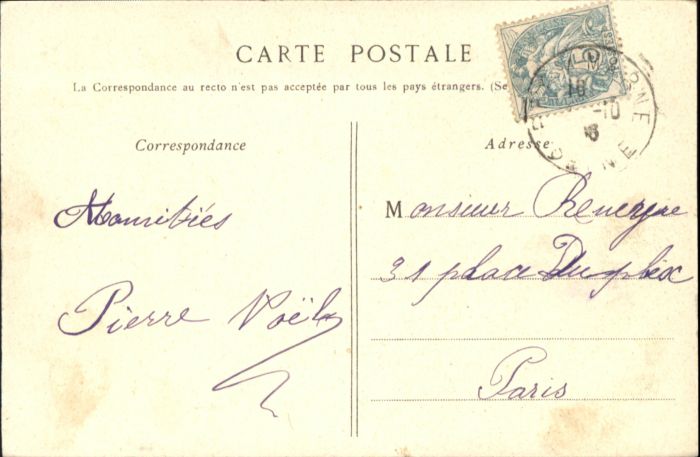 CARTE POSTALE
La Correspondance au recto n'est pas acceptée par tous les pays étrangers. (Se
Correspondance
Adresse
Pierre Noël
Monsieur
31 place Dupleix
Paris